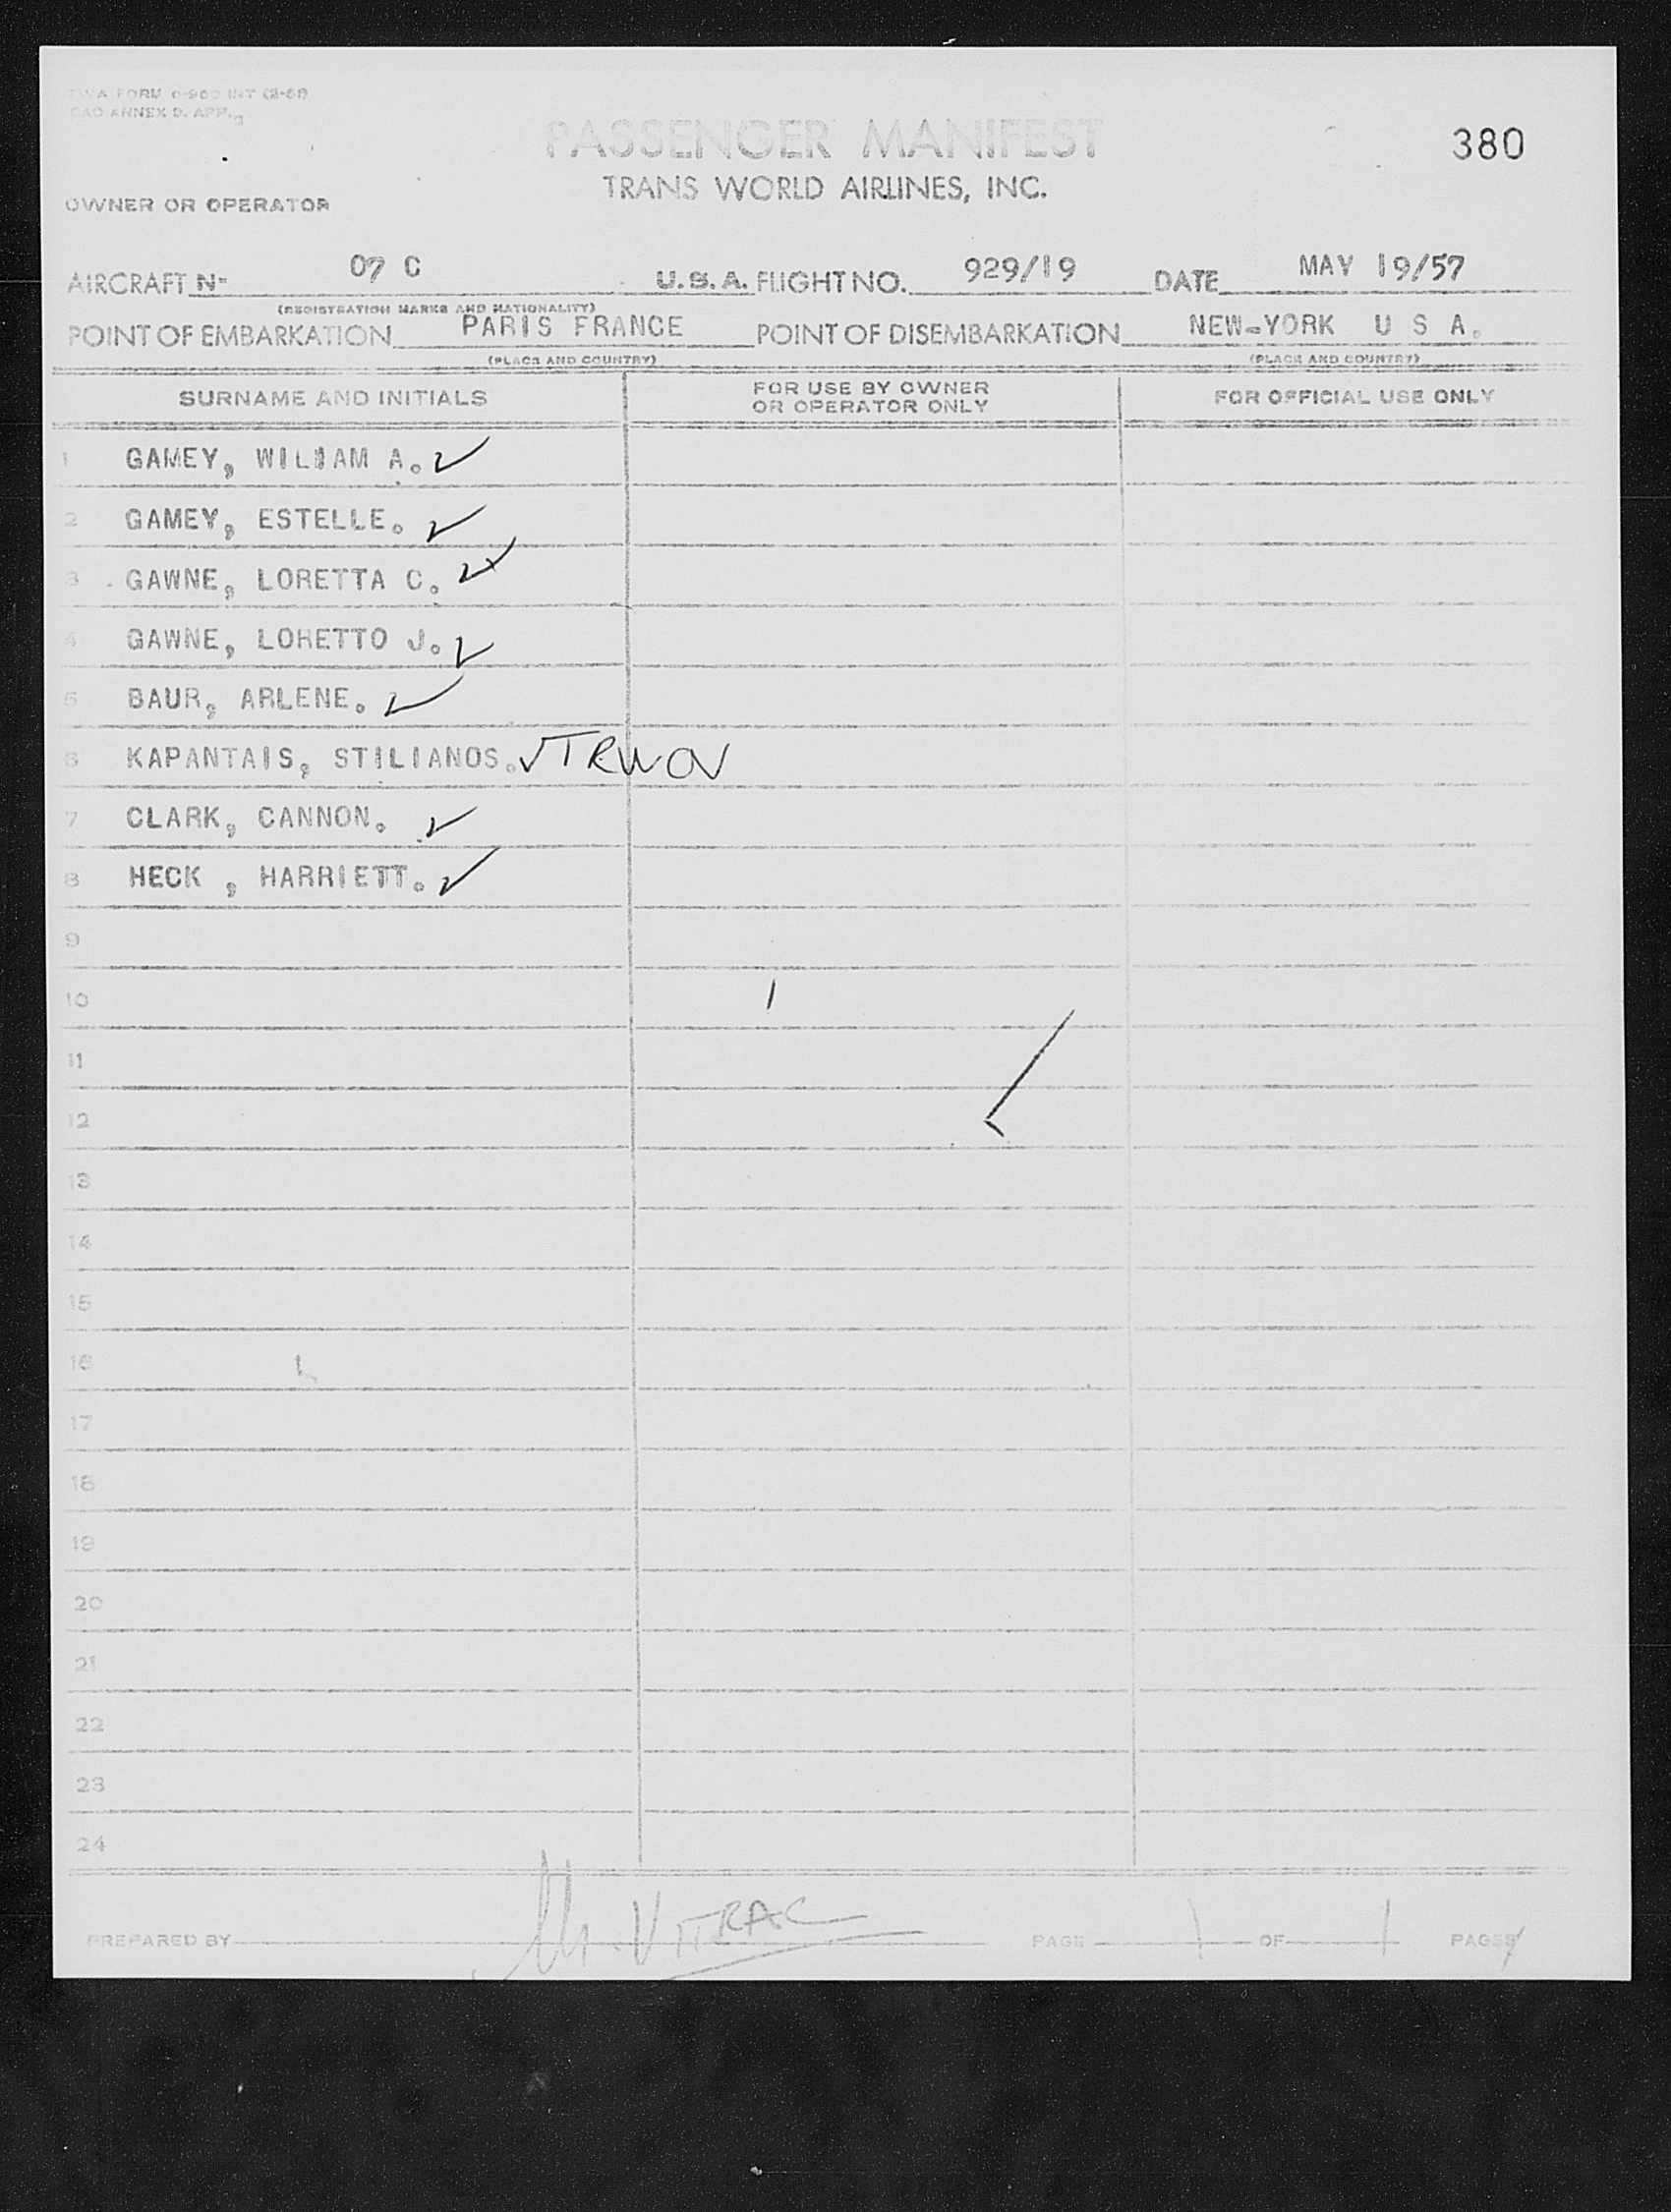 TWA FORM INT
ICAO ANNEX 9, APP.
PASSENGER MANIFEST
380
TRANS WORLD AIRLINES, INC.
OWNER OR OPERATOR
AIRCRAFT N- 07 C U.S.A. FLIGHT NO. 929/19 DATE MAY 19/57
(REGISTRATION MARKS AND NATIONALITY)
POINT OF EMBARKATION PARIS FRANCE POINT OF DISEMBARKATION NEW-YORK U S A.
(PLACE AND COUNTRY) (PLACE AND COUNTRY)
SURNAME AND INITIALS FOR USE BY OWNER OR OPERATOR ONLY FOR OFFICIAL USE ONLY
1 GAMEY, WILLIAM A. ✓
2 GAMEY, ESTELLE. ✓
3 GAWNE, LORETTA C. ✓
4 GAWNE, LORETTO J. ✓
5 BAUR, ARLENE. ✓
6 KAPANTAIS, STILIANOS. ✓ TRWOV
7 CLARK, CANNON. ✓
8 HECK , HARRIETT. ✓
9
10
11
12
13
14
15
16
17
18
19
20
21
22
23
24
PREPARED BY M. VITRAC PAGE 1 OF 1 PAGES